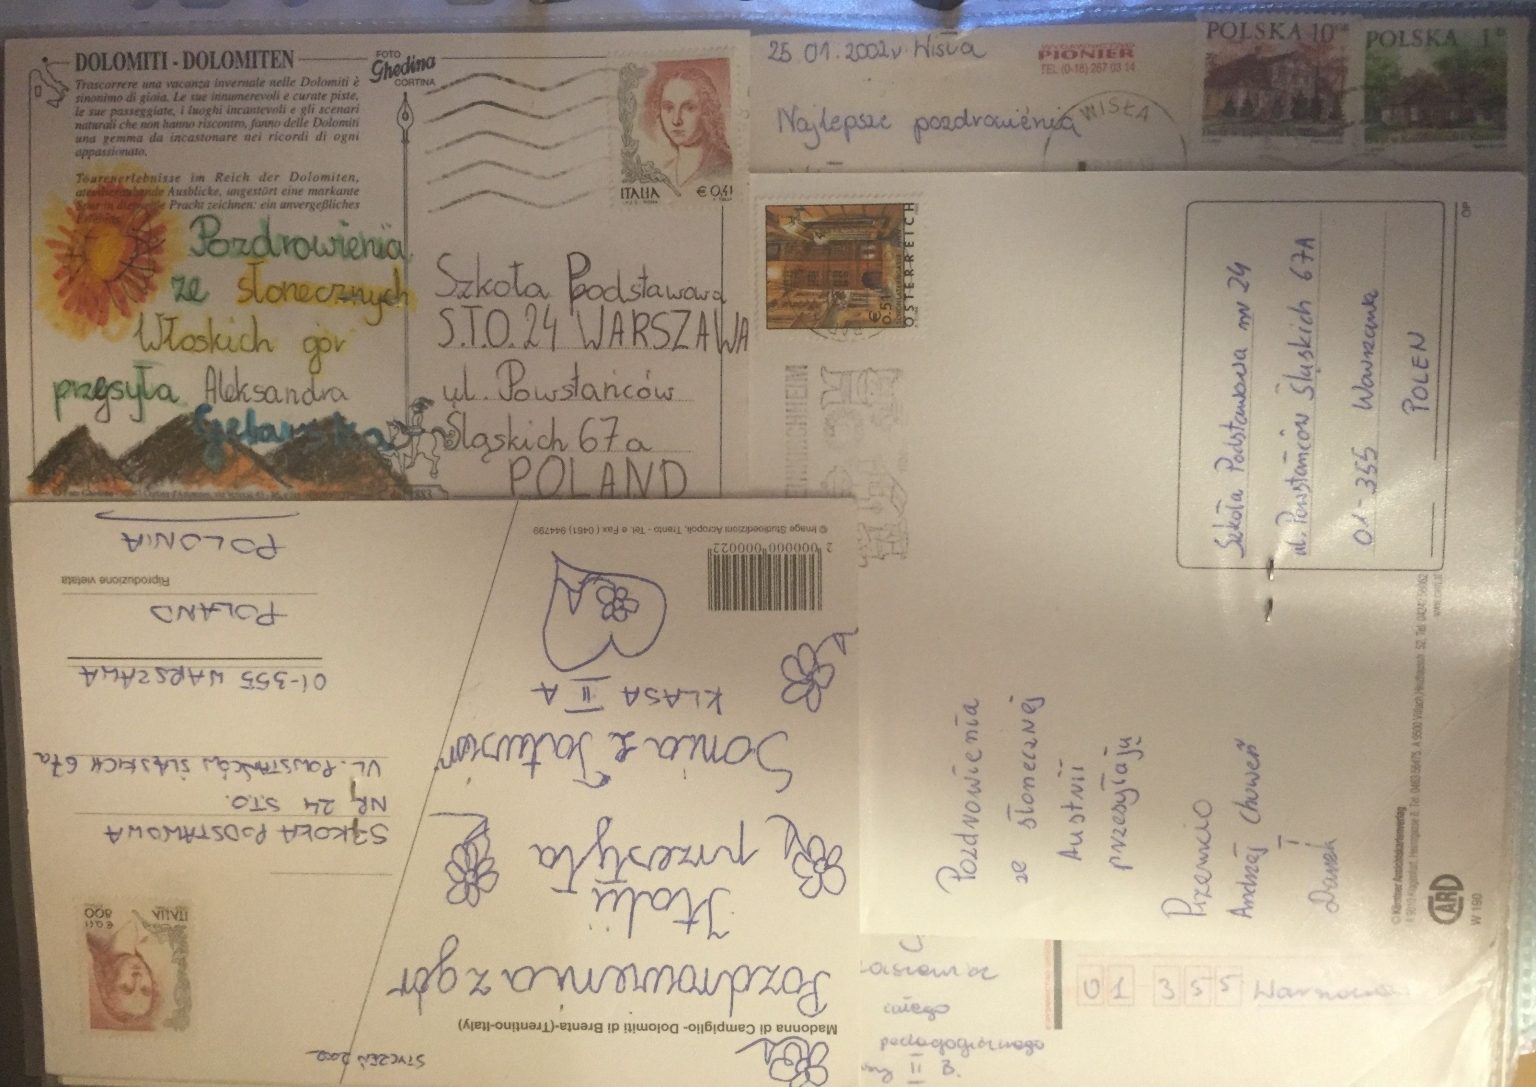 DOLOMITI - DOLOMITEN
Trascorrere una vacanza invernale nelle Dolomiti è
sinonimo di gioia. Le sue innumerevoli e curate piste,
le sue passeggiate, i luoghi incantevoli e gli scenari
naturali che non hanno riscontro, fanno delle Dolomiti
una gemma da incastonare nei ricordi di ogni
appassionato.
Tourenerlebnisse im Reich der Dolomiten,
atemberaubende Ausblicke, ungestört eine markante
Spur in die Pracht zeichnen: ein unvergeßliches
FOTO
Ghedina
CORTINA
ITALIA € 0,41
Pozdrowienia
ze słonecznych
Włoskich gór
przesyła Aleksandra
Szkoła Podstawowa
S.T.O. 24 WARSZAWA
ul. Powstańców
Śląskich 67a
POLAND
25.01.2002r Wisła
PIONIER
TEL (0-18) 267 03 14
Najlepsze pozdrowienia
WISŁA
POLSKA 10
POLSKA 1
€ 0.51
ÖSTERREICH
OP
Szkoła Podstawowa nr 24
ul. Powstańców Śląskich 67A
01-355 Warszawa
POLEN
Pozdrowienia
ze słonecznej
Austrii
przesyłają
Andrzej
i
CARD
W 190
Madonna di Campiglio - Dolomiti di Brenta - (Trentino-Italy)
STYCZEŃ 2002
Pozdrowienia z gór
Italii
przesyła
Sonia z Tatusiem
KLASA II A
2 000000 000022
© Image Studioedizioni Acropoli, Trento - Tel. e Fax (0461) 944799
ITALIA
€ 0,41
800
SZKOŁA PODSTAWOWA
NR 24 S.T.O.
UL. POWSTAŃCÓW ŚLĄSKICH 67a
01-355 WARSZAWA
POLAND
Riproduzione vietata
POLONIA
całego
pedagogicznego
II B.
01 355 Warszawa